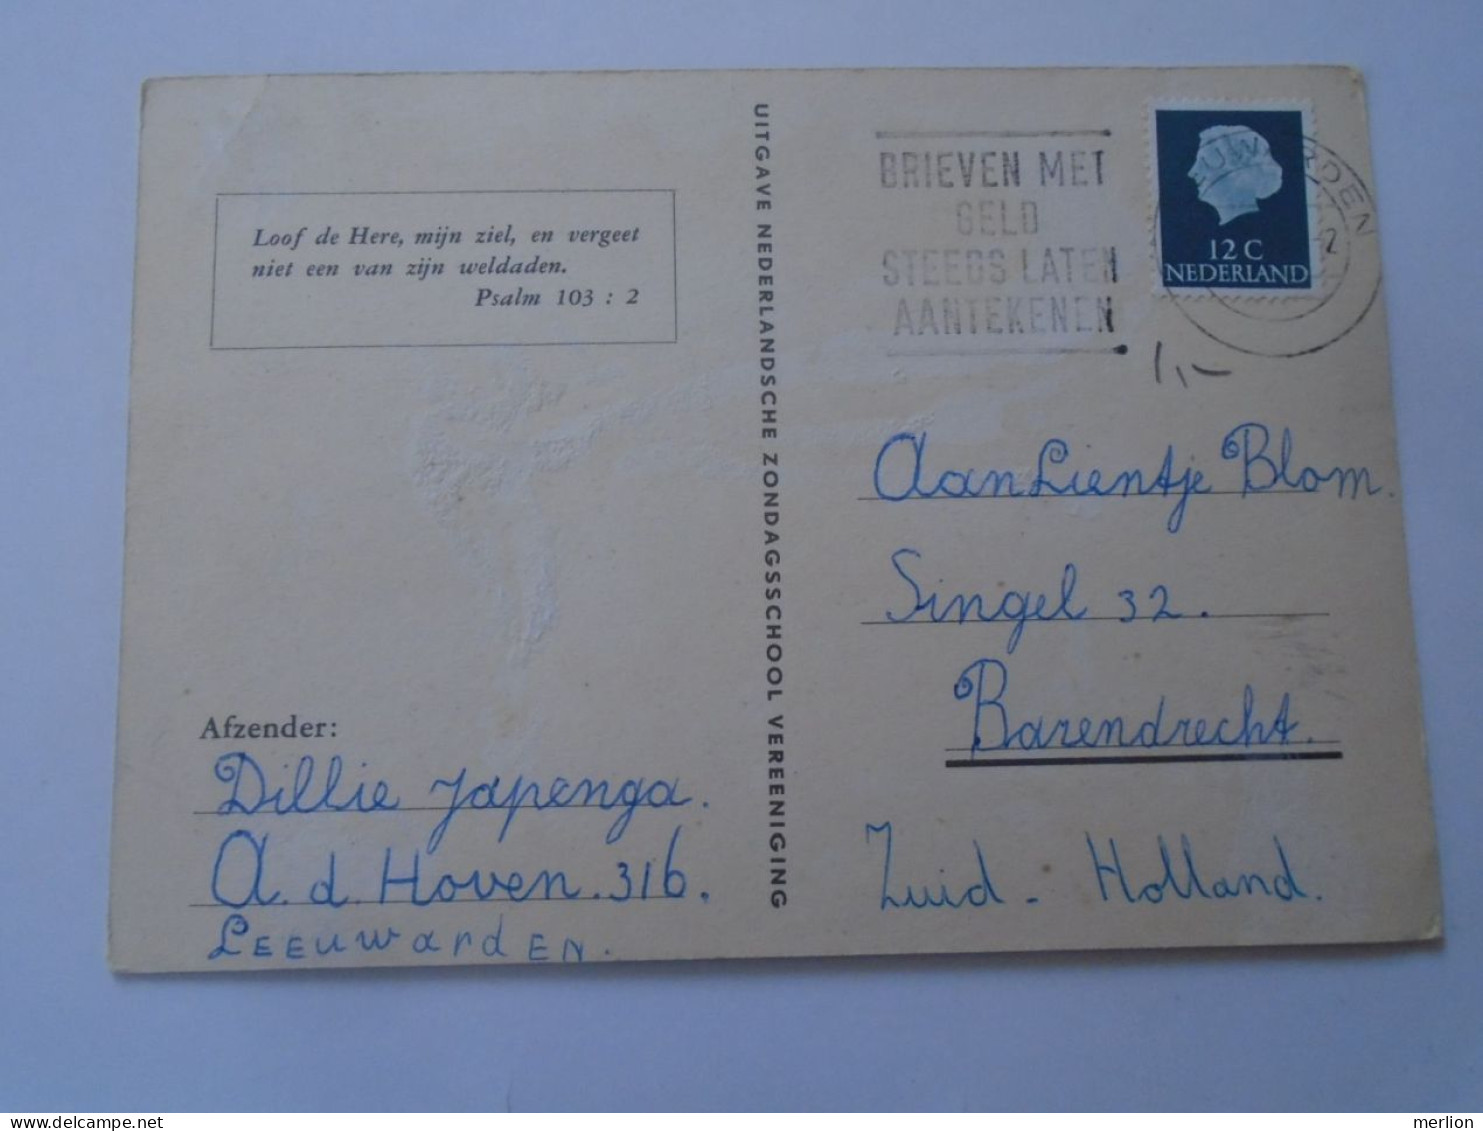 Loof de Here, mijn ziel, en vergeet
niet een van zijn weldaden.
Psalm 103 : 2
Afzender:
Dillie Japenga.
A. d. Hoven. 316.
Leeuwarden.
UITGAVE NEDERLANDSCHE ZONDAGSSCHOOL VEREENIGING
BRIEVEN MET
GELD
STEEDS LATEN
AANTEKENEN
12 C
NEDERLAND
Aan Lientje Blom.
Singel 32.
Barendrecht.
Zuid - Holland.
merlion